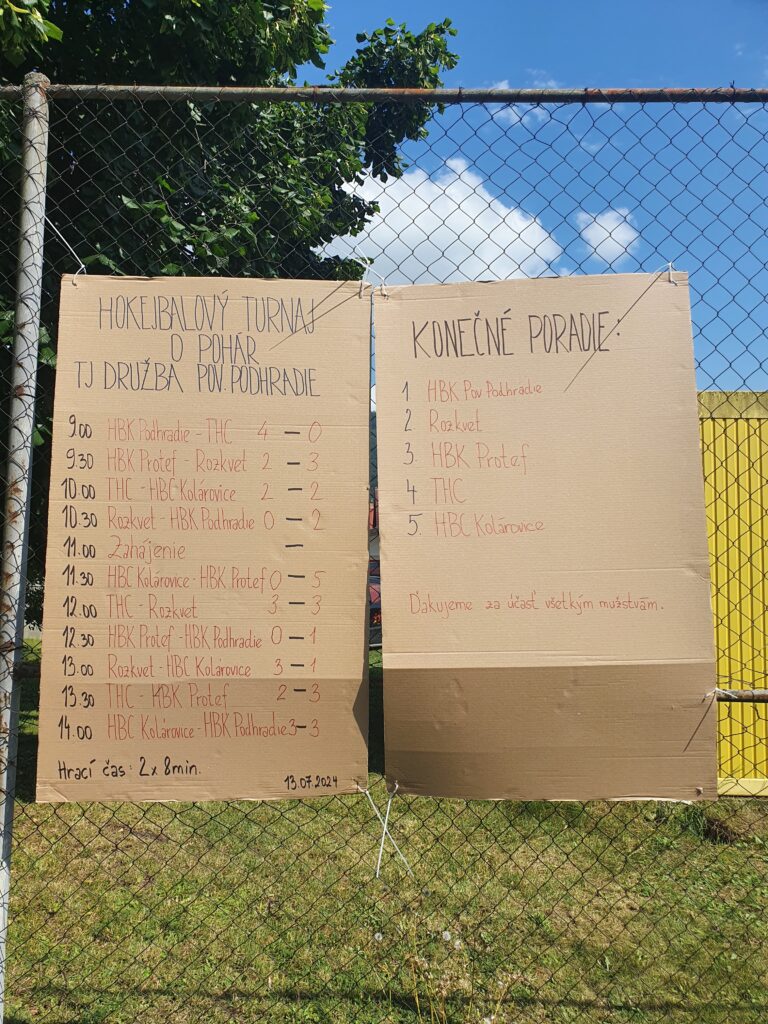 HOKEJBALOVÝ TURNAJ
O POHÁR
TJ DRUŽBA POV. PODHRADIE
9.00 HBK Podhradie - THC 4 - 0
9.30 HBK Protef - Rozkvet 2 - 3
10.00 THC - HBC Kolárovice 2 - 2
10.30 Rozkvet - HBK Podhradie 0 - 2
11.00 Zahájenie -
11.30 HBC Kolárovice - HBK Protef 0 - 5
12.00 THC - Rozkvet 3 - 3
12.30 HBK Protef - HBK Podhradie 0 - 1
13.00 Rozkvet - HBC Kolárovice 3 - 1
13.30 THC - HBK Protef 2 - 3
14.00 HBC Kolárovice - HBK Podhradie 3 - 3
Hrací čas: 2x 8min.
13.07.2024
KONEČNÉ PORADIE:
1 HBK Pov Podhradie
2 Rozkvet
3. HBK Protef
4 THC
5. HBC Kolárovice
Ďakujeme za účasť všetkým mužstvám.